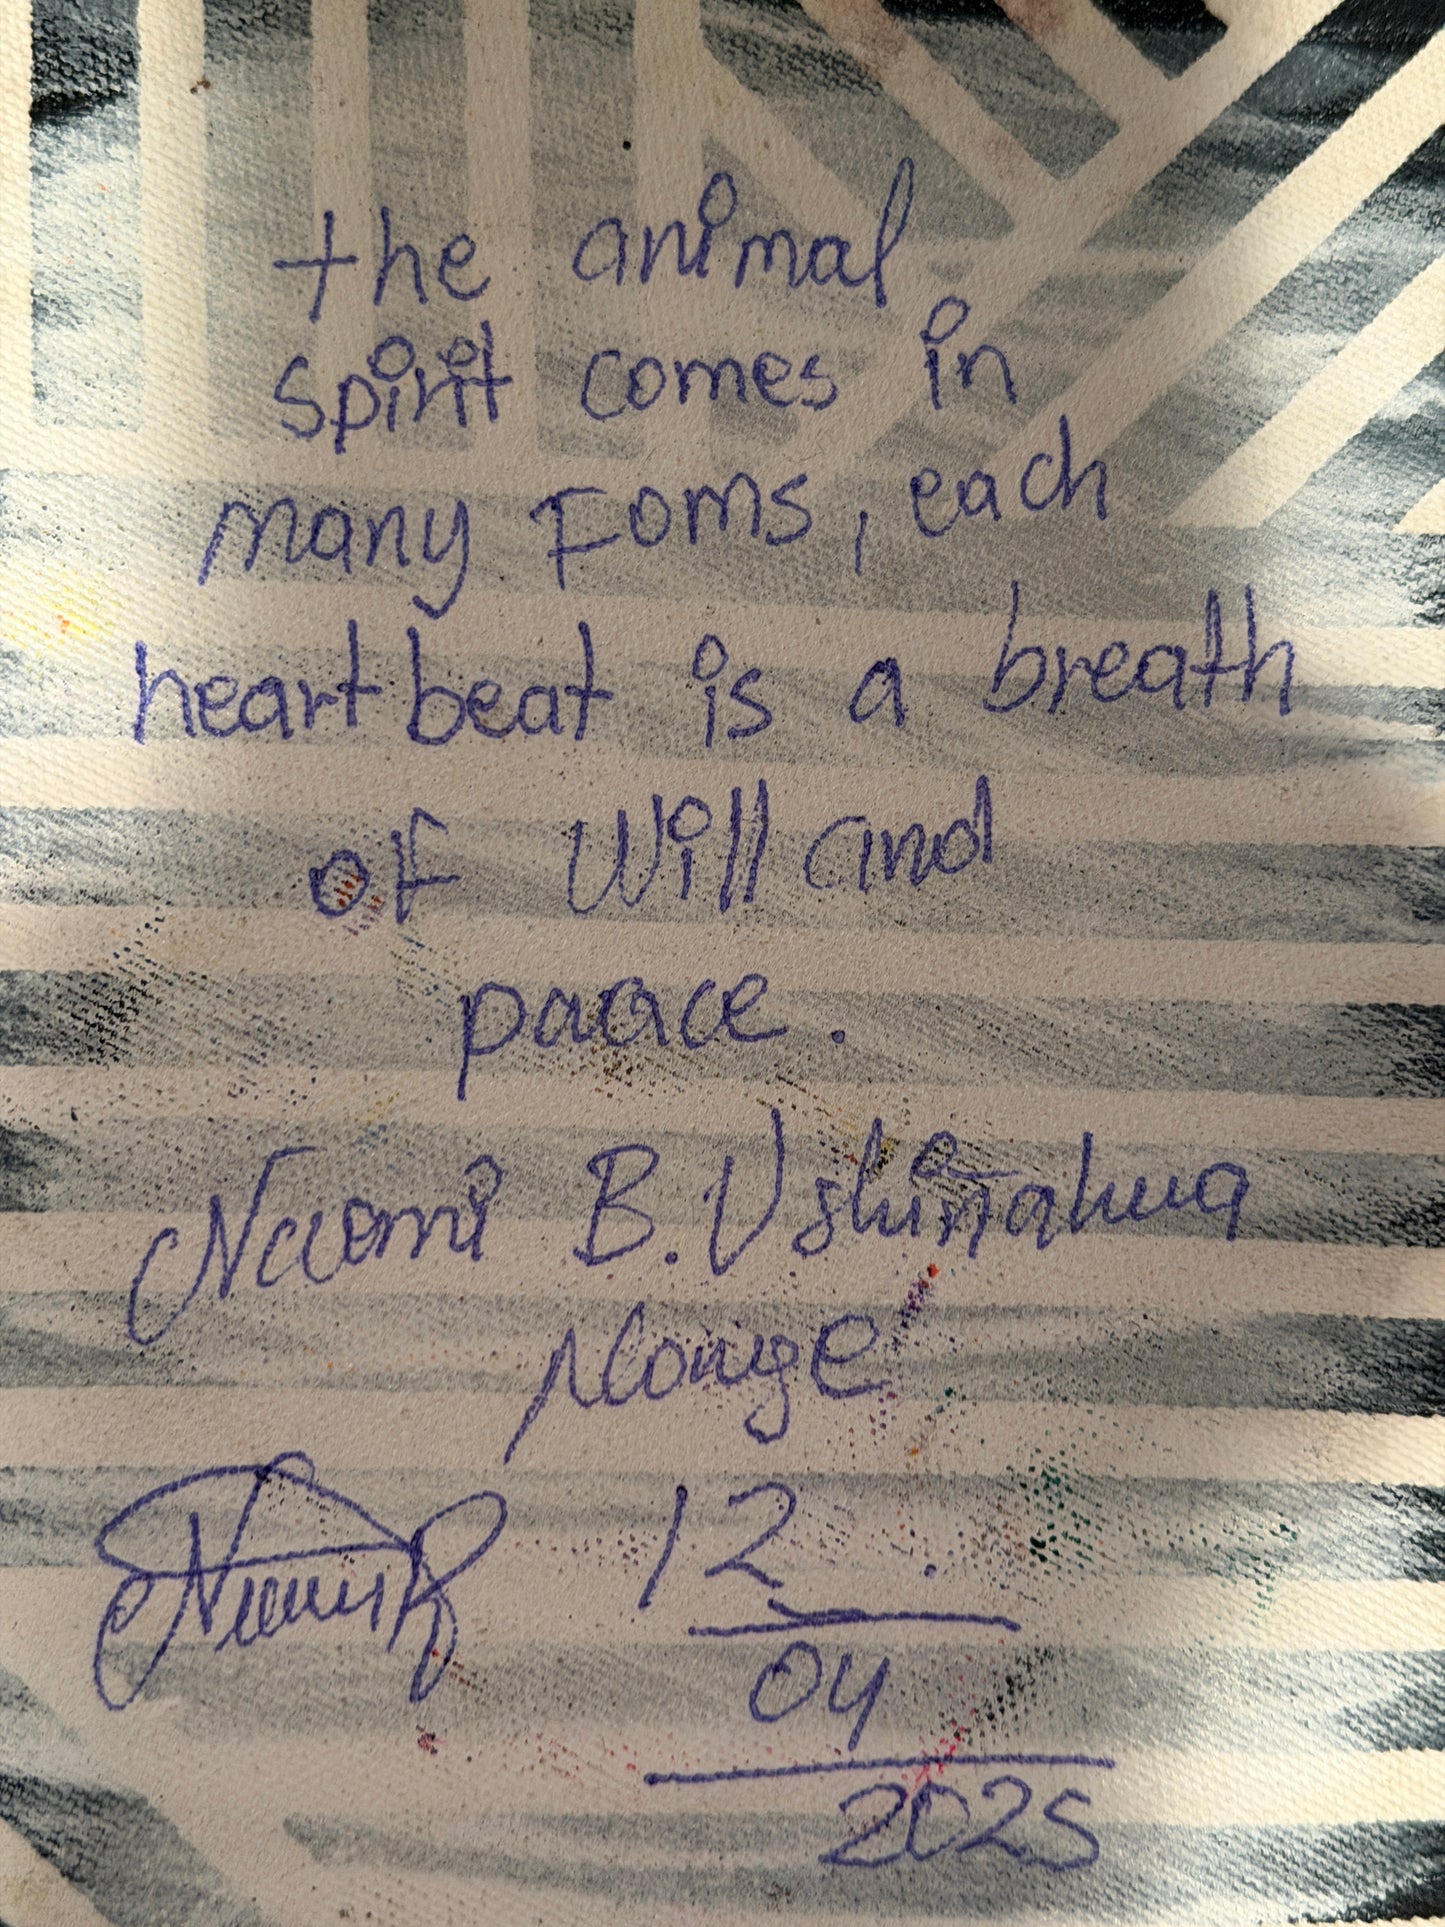 the animal
spirit comes in
many Foms, each
heartbeat is a breath
of Will and
paace.
Naomi B. Ushiñahua
Monge
12
04
2025